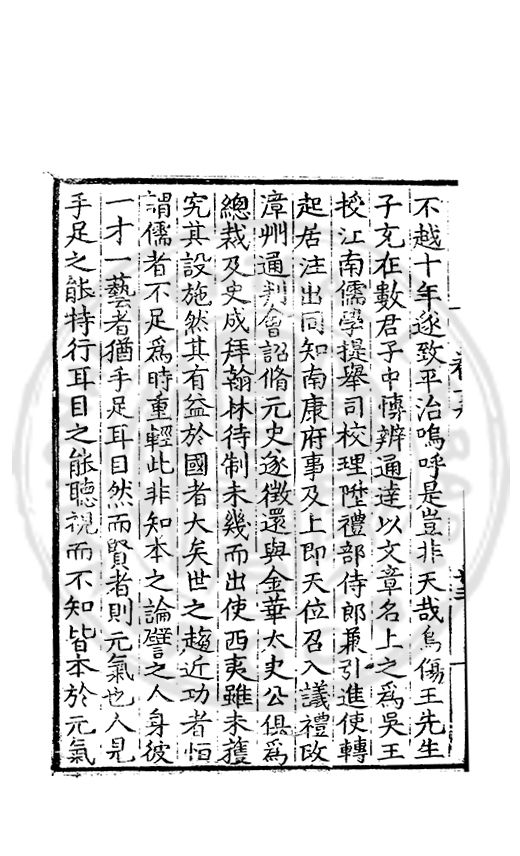 不越十年遂致平治嗚呼是豈非天哉烏傷王先生
子充在數君子中慱辨通達以文章名上之爲吳王
授江南儒學提舉司校理陞禮部侍郎兼引進使轉
起居注出同知南康府事及上即天位召入議禮改
漳州通判會詔脩元史遂徵還與金華太史公俱爲
總裁及史成拜翰林待制未幾而出使西夷雖未獲
究其設施然其有益於國者大矣世之趨近功者恒
謂儒者不足爲時重輕此非知本之論譬之人身彼
一才一藝者猶手足耳目然而賢者則元氣也人見
手足之能持行耳目之能聽視而不知皆本於元氣